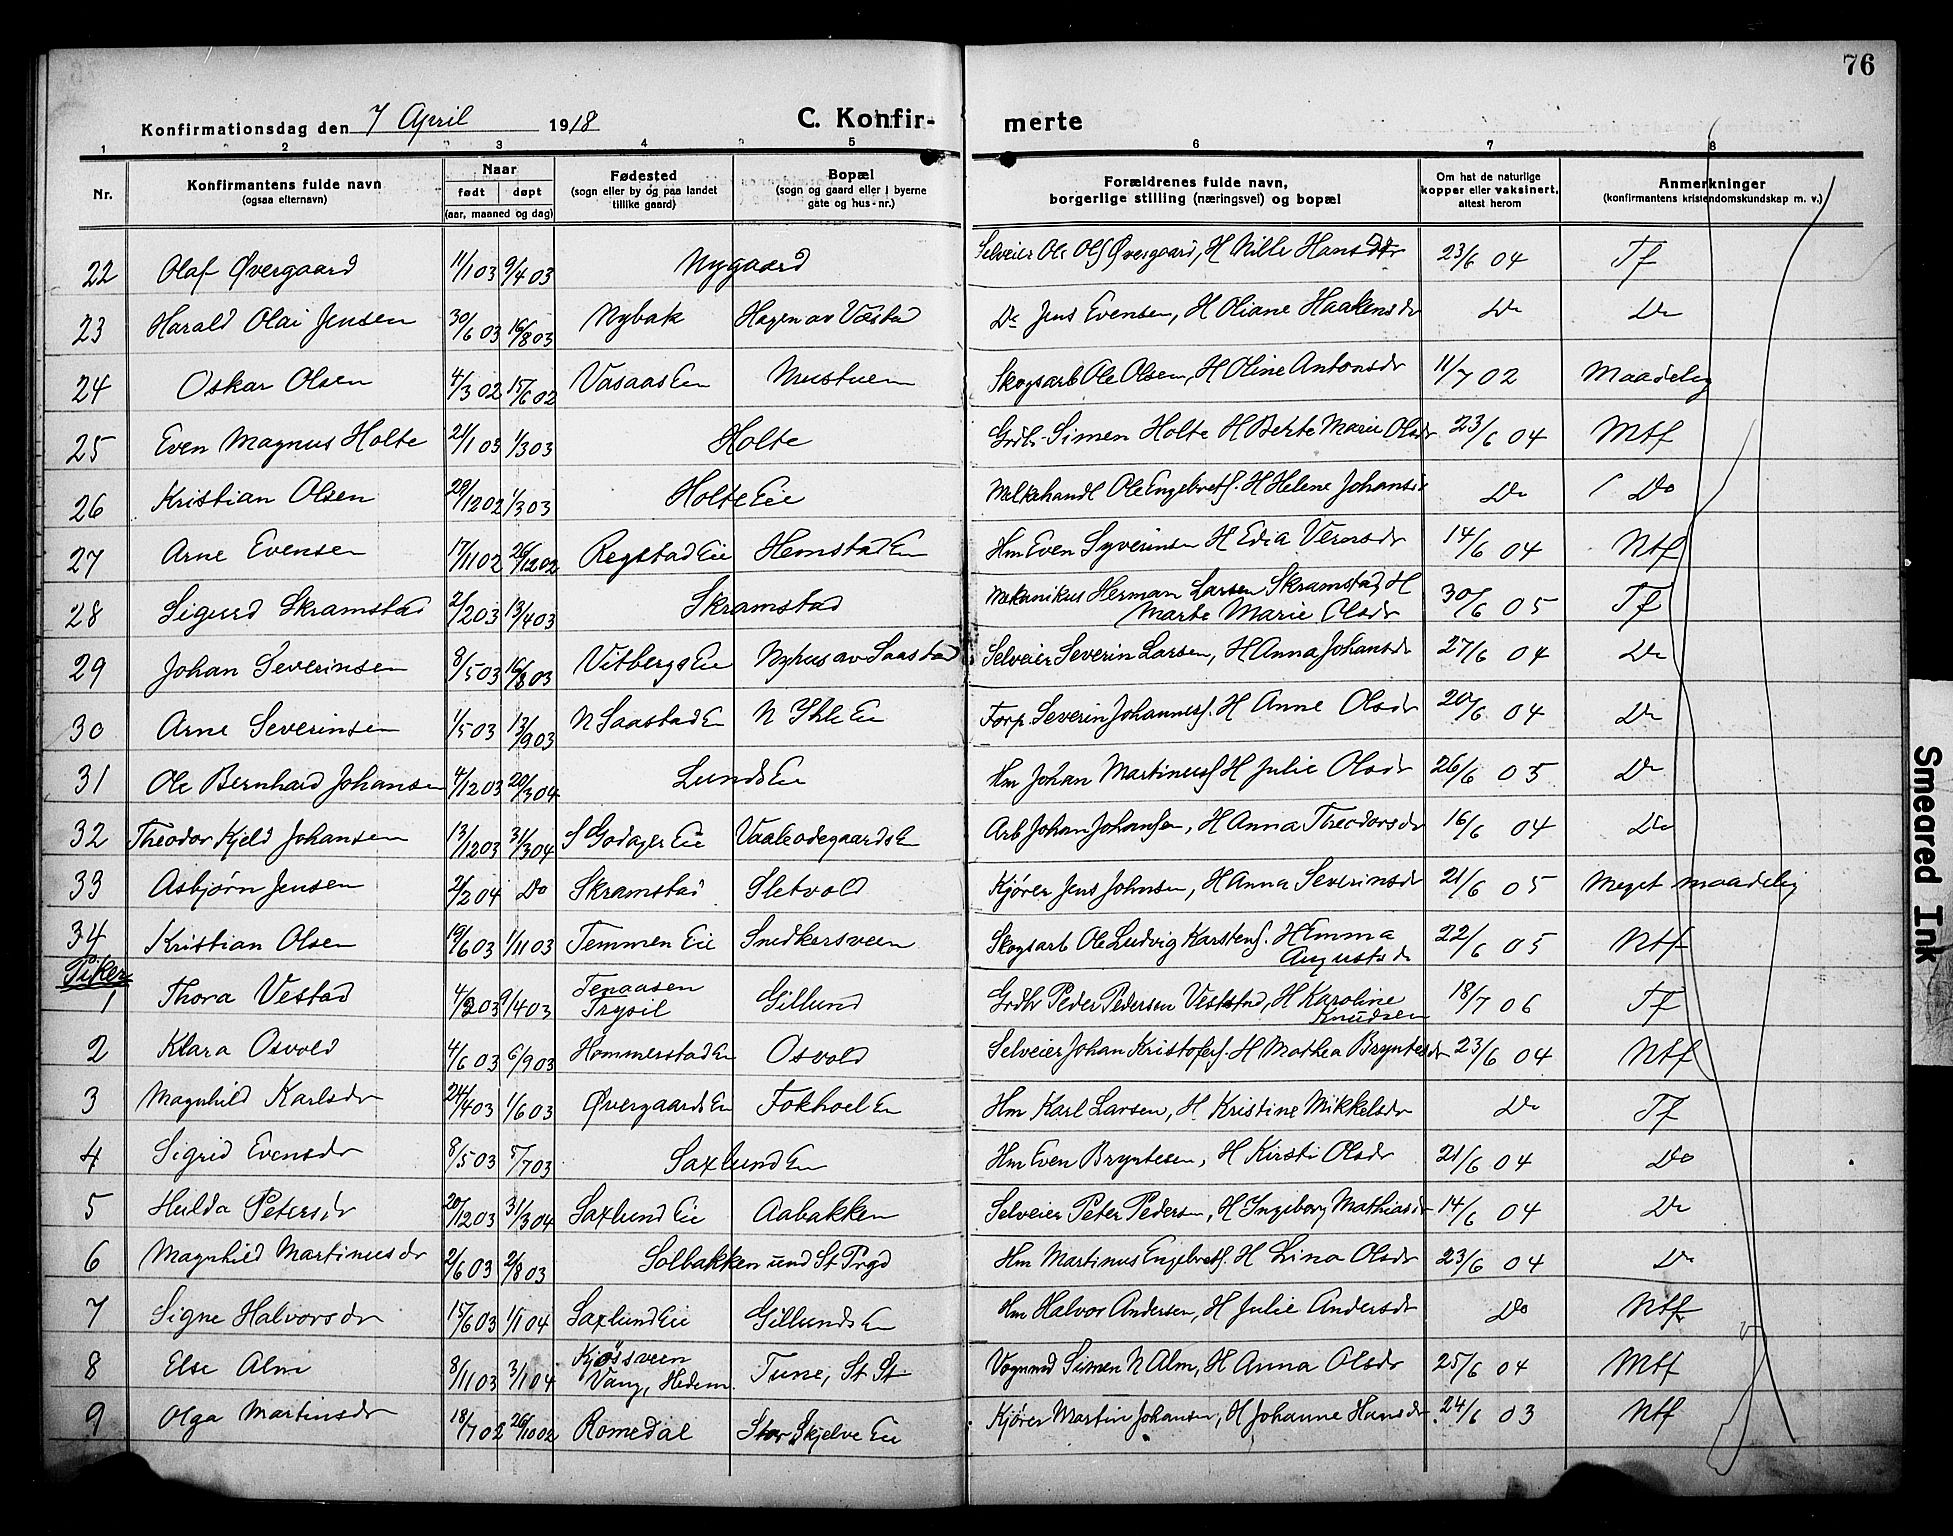 76
Konfirmationsdag den 7 April 1918 C. Konfir- merte
1 2 3 4 5 6 7 8
Nr. Konfirmantens fulde navn (ogsaa efternavn) Naar født døpt (aar, maaned og dag) Fødested (sogn eller by og paa landet tillike gaard) Bopæl (sogn og gaard eller i byerne gate og hus-nr.) Forældrenes fulde navn, borgerlige stilling (næringsvei) og bopæl Om hat de naturlige kopper eller vaksinert, attest herom Anmerkninger (konfirmantens kristendomskundskap m. v.)
22 Olaf Øvergaard 11/1 03 9/4 03 Nygaard Selveier Ole Ols Øvergaard, H Mille Hansdtr 23/6 04 Tf
23 Harald Olai Jensen 30/6 03 16/8 03 Nybak Hagen av Vestad Do Jens Evensen, H Oliane Haakensdr Do Do
24 Oskar Olsen 4/3 02 15/6 02 Vasaas Eie Mustuen Skogsarb Ole Olsen, H Oline Antonsdr 11/7 02 Maadelig
25 Even Magnus Holte 21/1 03 1/3 03 Holte Grdbr Simen Holte H Berte Marie Olsdr 23/6 04 Mtf
26 Kristian Olsen 29/12 02 1/3 03 Holte Eie Melkehandl Ole Engebrets. H Helene Johansdr Do Do
27 Arne Evensen 17/11 02 26/12 02 Regstad Eie Hemstad Eie Hm Even Syverinsen H Edia Vernsdr 14/6 04 Ntf
28 Sigurd Skramstad 2/2 03 13/4 03 Skramstad Mekanikus Herman Larsen Skramstad, H
Marte Marie Olsdr 30/6 05 Tf
29 Johan Severinsen 8/5 03 16/8 03 Vitbergs Eie Nyhus av Saastad Selveier Severin Larsen, H Anna Johansdr 27/6 04 Do
30 Arne Severinsen 1/5 03 13/9 03 N Saastad Eie N Ihle Eie Forp. Severin Johanness. H Anne Olsdr 20/6 04 Do
31 Ole Bernhard Johansen 4/12 03 20/3 04 Lunds Eie Hm Johan Martinus. H Julie Olsdr 26/6 05 Do
32 Theodor Kjeld Johansen 13/12 03 31/3 04 S Godager Eie Vaaleodegaards Eie Arb Johan Johansen, H Anna Theodorsdr 16/6 04 Do
33 Asbjørn Jensen 2/2 04 Do Skramstad Sletvold Kjører Jens Johnsen, H Anna Severinsdr 21/6 05 Meget maadelig
34 Kristian Olsen 19/6 03 1/11 03 Temmen Eie Snedkersveen Skogsarb Ole Ludvig Karstens. H Emma
Augustsdr 22/6 05 Ntf
Piker
1 Thora Vestad 4/2 03 9/4 03 Tenaasen
Trysil Gillund Grdbr Peder Pedersen Vestad, H Karoline
Knudsen 18/7 06 Tf
2 Klara Osvold 4/6 03 6/9 03 Hommerstad Eie Osvold Selveier Johan Kristofers. H Mathea Bryntesdr 23/6 04 Ntf
3 Magnhild Karlsdr 24/4 03 1/6 03 Øvergaards Eie Fokhoel Eie Hm Karl Larsen, H Kristine Mikkelsdr Do Tf
4 Sigrid Evensdr 8/5 03 5/7 03 Saxlund Eie Hm Even Bryntesen, H Kirsti Olsdr 21/6 04 Do
5 Hulda Petersdr 20/12 03 31/3 04 Saxlund Eie Aabakken Selveier Peter Pedersen, H Ingeborg Mathiasdr 14/6 04 Do
6 Magnhild Martinusdr 2/6 03 2/8 03 Solbakken und St Prgd Hm Martinus Engebrets. H Lina Olsdr 23/6 04 Do
7 Signe Halvorsdr 15/6 03 1/1 04 Saxlund Eie Gillunds Eie Hm Halvor Andersen, H Julie Andersdr Do Ntf
8 Else Alm 8/11 03 3/1 04 Kjøssveen
Vang, Hedem. Tune, St St Vognmd Simen N Alm, H Anna Olsdr 25/6 04 Mtf
9 Olga Martinsdr 18/7 02 26/10 02 Romedal Stor Skjelve Eie Kjører Martin Johansen, H Johanne Hansdr 24/6 03 Ntf
Smeared Ink